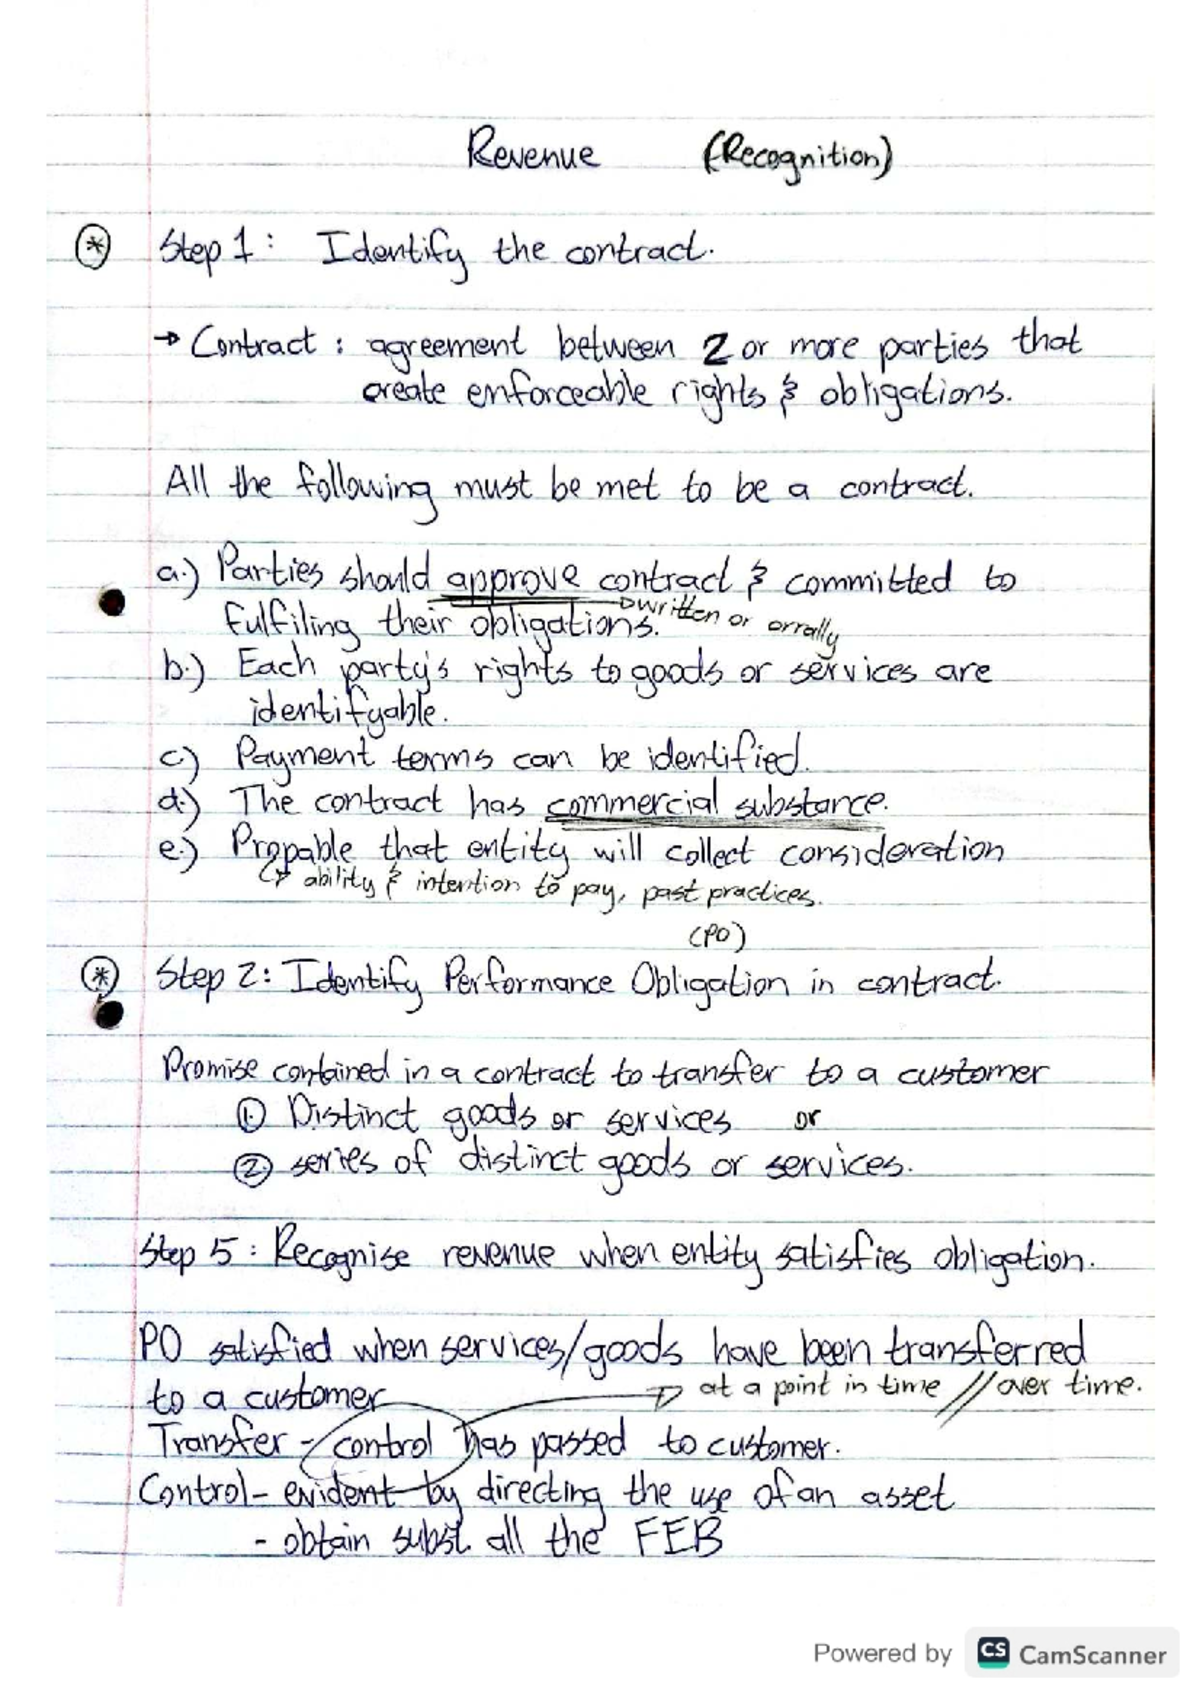 Revenue (Recognition)
* Step 1: Identify the contract.
→ Contract: agreement between 2 or more parties that
create enforceable rights & obligations.
All the following must be met to be a contract.
a.) Parties should approve contract & committed to
fulfiling their obligations. → written or orrally
b.) Each party's rights to goods or services are
identifyable.
c.) Payment terms can be identified.
d.) The contract has commercial substance.
e.) Propable that entity will collect consideration
↳ ability & intention to pay, past practices.
(PO)
* Step 2: Identify Performance Obligation in contract.
Promise contained in a contract to transfer to a customer
① Distinct goods or services or
② series of distinct goods or services.
Step 5: Recognise revenue when entity satisfies obligation.
PO satisfied when services/goods have been transferred
to a customer → at a point in time // over time.
Transfer - control has passed to customer.
Control - evident by directing the use of an asset
- obtain subst. all the FEB
Powered by CS CamScanner